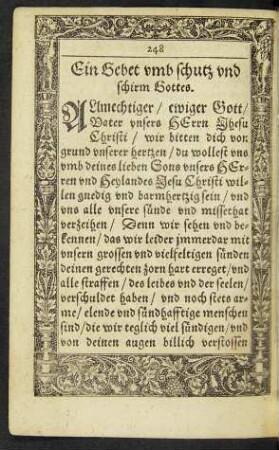 248
Ein Gebet vmb schutz vnd
schirm Gottes.
ALmechtiger / ewiger Gott /
Vater vnsers HErrn Jhesu
Christi / wir bitten dich von
grund vnserer hertzen / du wollest vns
vmb deines lieben Sons vnsers HEr-
ren vnd Heylandes Jesu Christi wil-
len gnedig vnd barmhertzig sein / vnd
vns alle vnsere sünde vnd missethat
verzeihen / Denn wir sehen vnd be-
kennen / das wir leider jmmerdar mit
vnsern grossen vnd vielfeltigen sünden
deinen gerechten zorn hart erreget / vnd
alle straffen / des leibes vnd der seelen /
verschuldet haben / vnd noch stets ar-
me / elende vnd sündhafftige menschen
sind / die wir teglich viel sündigen / vnd
von deinen augen billich verstossen